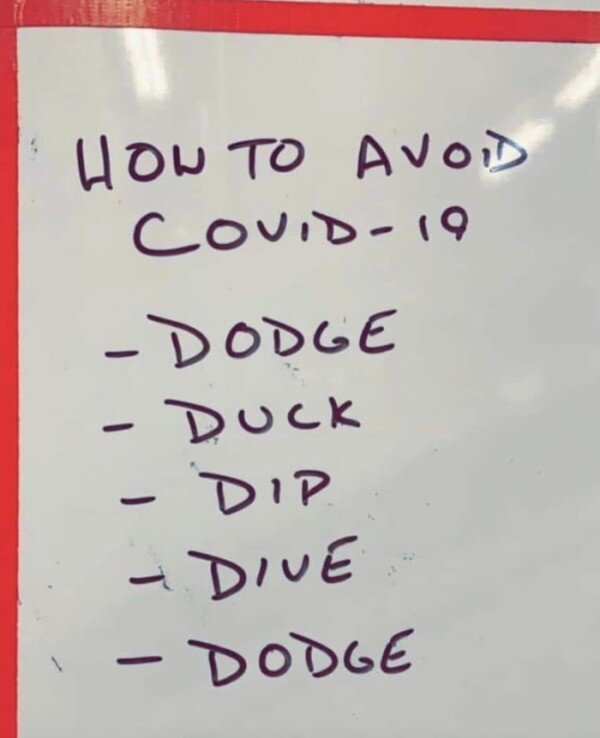 HOW TO AVOID
COVID-19
- DODGE
- DUCK
- DIP
- DIVE
- DODGE